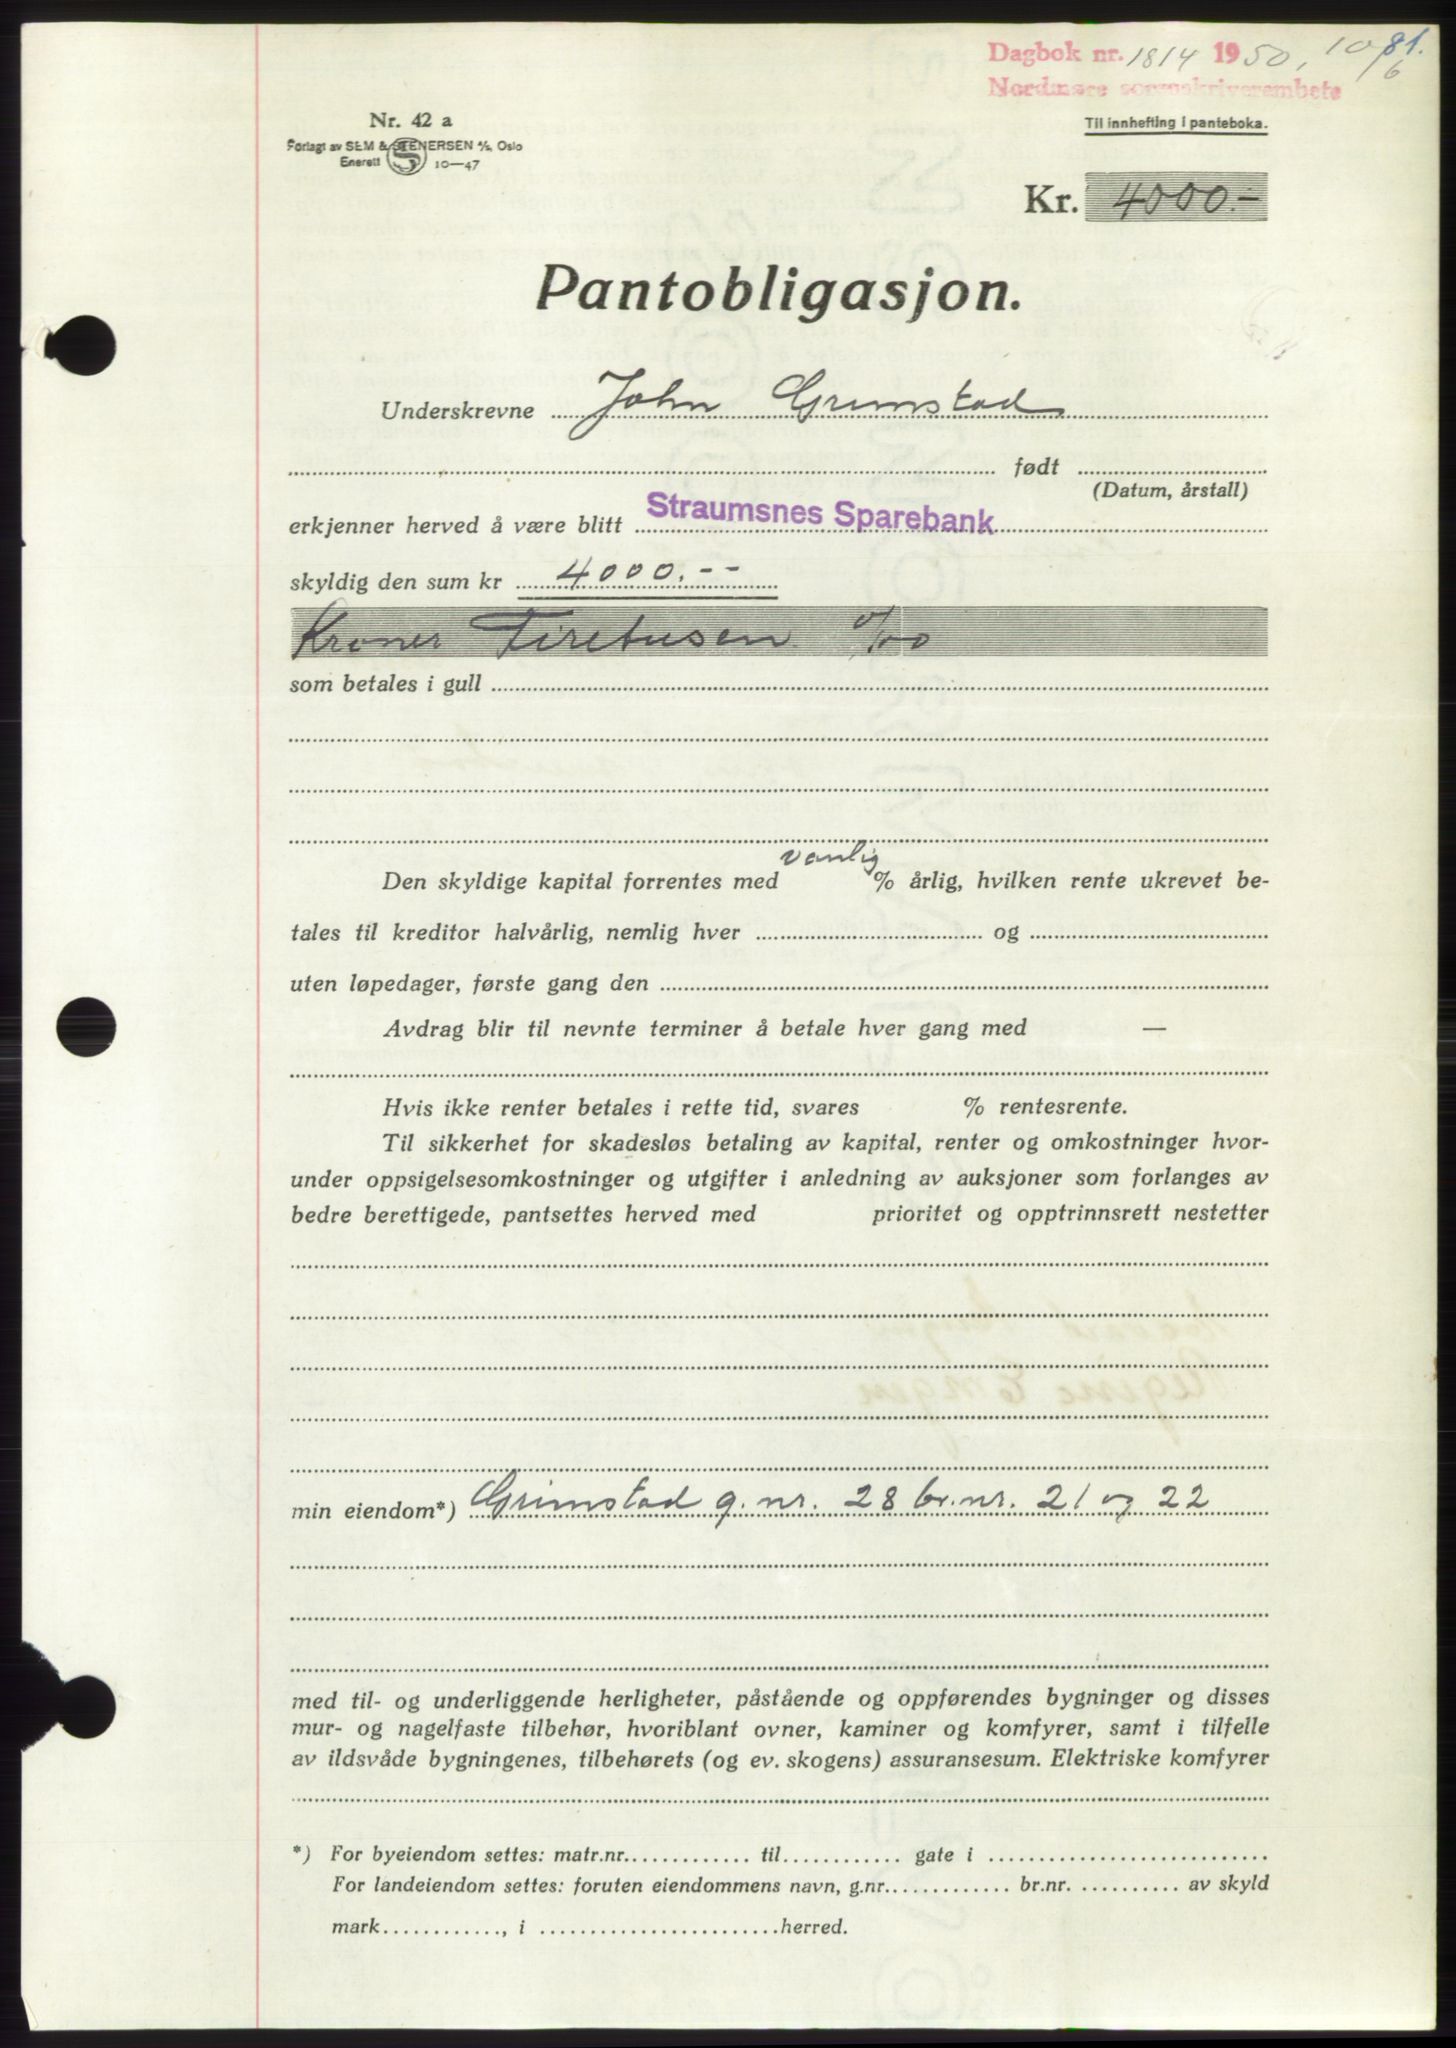 Dagbok nr. 1814 1950, 10/6 81.
Nordmøre sorenskriverembete
Nr. 42 a
Forlagt av SEM & STENERSEN A/S, Oslo
Enerett 10—47
Til innhefting i panteboka.
Kr. 4000.-
Pantobligasjon.
Underskrevne John Grimstad
født
(Datum, årstall)
erkjenner herved å være blitt Straumsnes Sparebank
skyldig den sum kr 4000.--
Kroner Firetusen 0/00
som betales i gull
vanlig
Den skyldige kapital forrentes med % årlig, hvilken rente ukrevet be-
tales til kreditor halvårlig, nemlig hver og
uten løpedager, første gang den
Avdrag blir til nevnte terminer å betale hver gang med —
Hvis ikke renter betales i rette tid, svares % rentesrente.
Til sikkerhet for skadesløs betaling av kapital, renter og omkostninger hvor-
under oppsigelsesomkostninger og utgifter i anledning av auksjoner som forlanges av
bedre berettigede, pantsettes herved med prioritet og opptrinnsrett nestetter
min eiendom*) Grimstad g.nr. 28 br.nr. 21 og 22
med til- og underliggende herligheter, påstående og oppførendes bygninger og disses
mur- og nagelfaste tilbehør, hvoriblant ovner, kaminer og komfyrer, samt i tilfelle
av ildsvåde bygningenes, tilbehørets (og ev. skogens) assuransesum. Elektriske komfyrer
*) For byeiendom settes: matr.nr. til gate i
For landeiendom settes: foruten eiendommens navn, g.nr. br.nr. av skyld
mark , i herred.